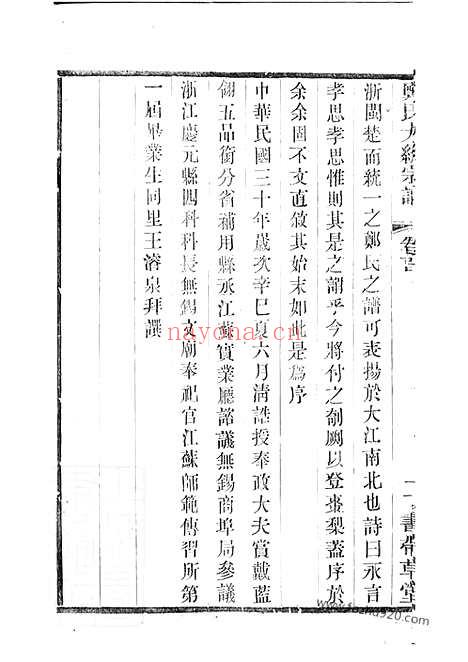 鄭氏大統宗譜
卷首
書帶草堂
浙閩楚而統一之鄭氏之譜可表揚於大江南北也詩曰永言
孝思孝思惟則其是之謂乎今將付之剞劂以登棗梨蓋序於
余余固不文直敘其始末如此是爲序
中華民國三十年歲次辛巳夏六月清誥授奉政大夫賞戴藍
翎五品銜分省補用縣丞江蘇實業廳諮議無錫商埠局參議
浙江慶元縣四科科長無錫文廟奉祀官江蘇師範傳習所第
一屆畢業生同里王溶泉拜譔
nayona.cn
www.souzha920.com